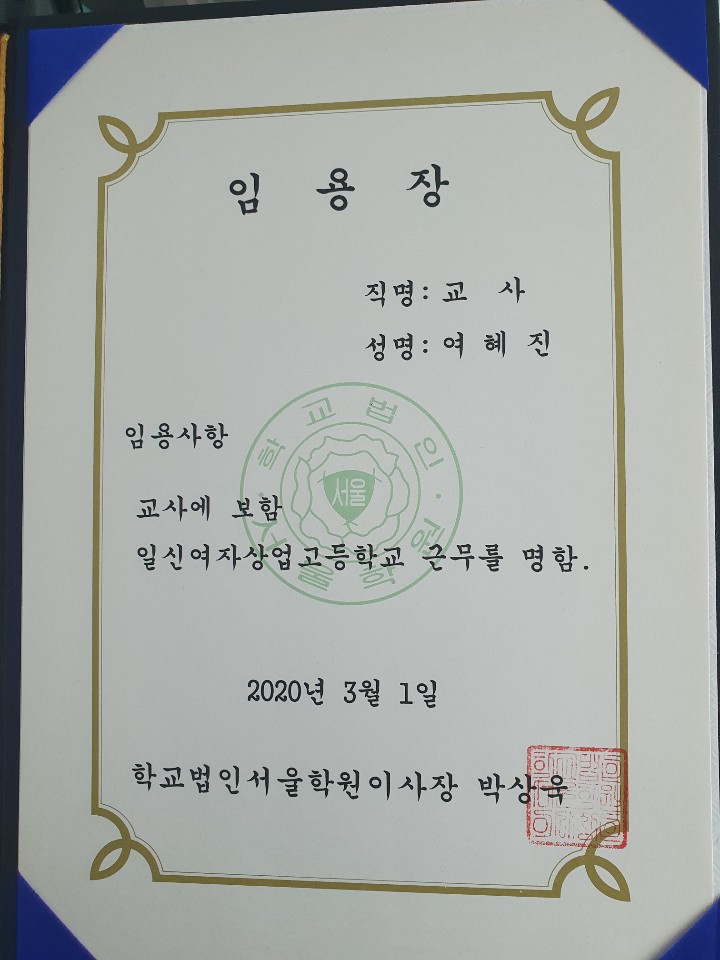 임 용 장
직명: 교 사
성명: 여 혜 진
임용사항
교사에 보함
일신여자상업고등학교 근무를 명함.
2020년 3월 1일
학교법인서울학원이사장 박상욱
학교법인·서울학원·
서울